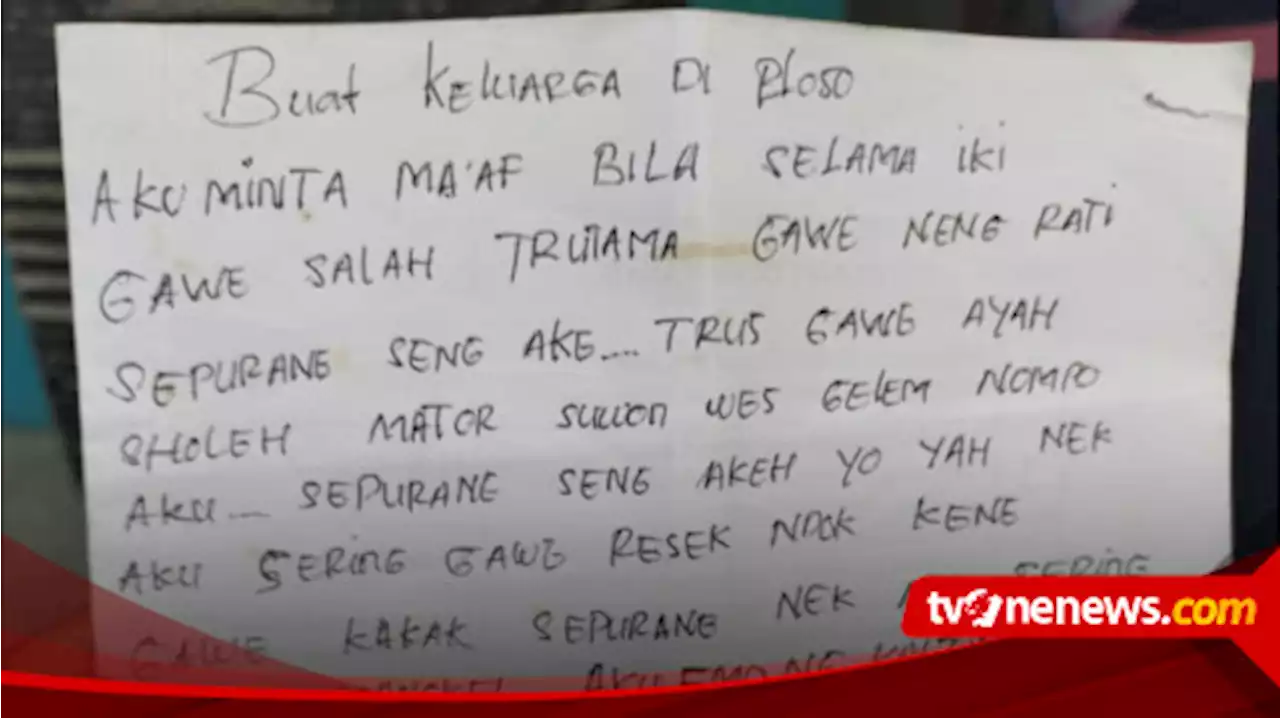 Buat KELUARGA DI PLOSO
AKU MINTA MA'AF BILA SELAMA iKi
GAWE SALAH TRUTAMA GAWE NENG RATi
SEPURANE SENG AKE.... TRUS GAWE AYAH
SHOLEH MATOR SUWON WES GELEM NOMPO
AKU.... SEPURANE SENG AKEH YO YAH NEK
AKU SERING GAWE RESEK NDOK KENE
GAWE KAKAK SEPURANE NEK SERING
AKU EMO
tvonenews.com